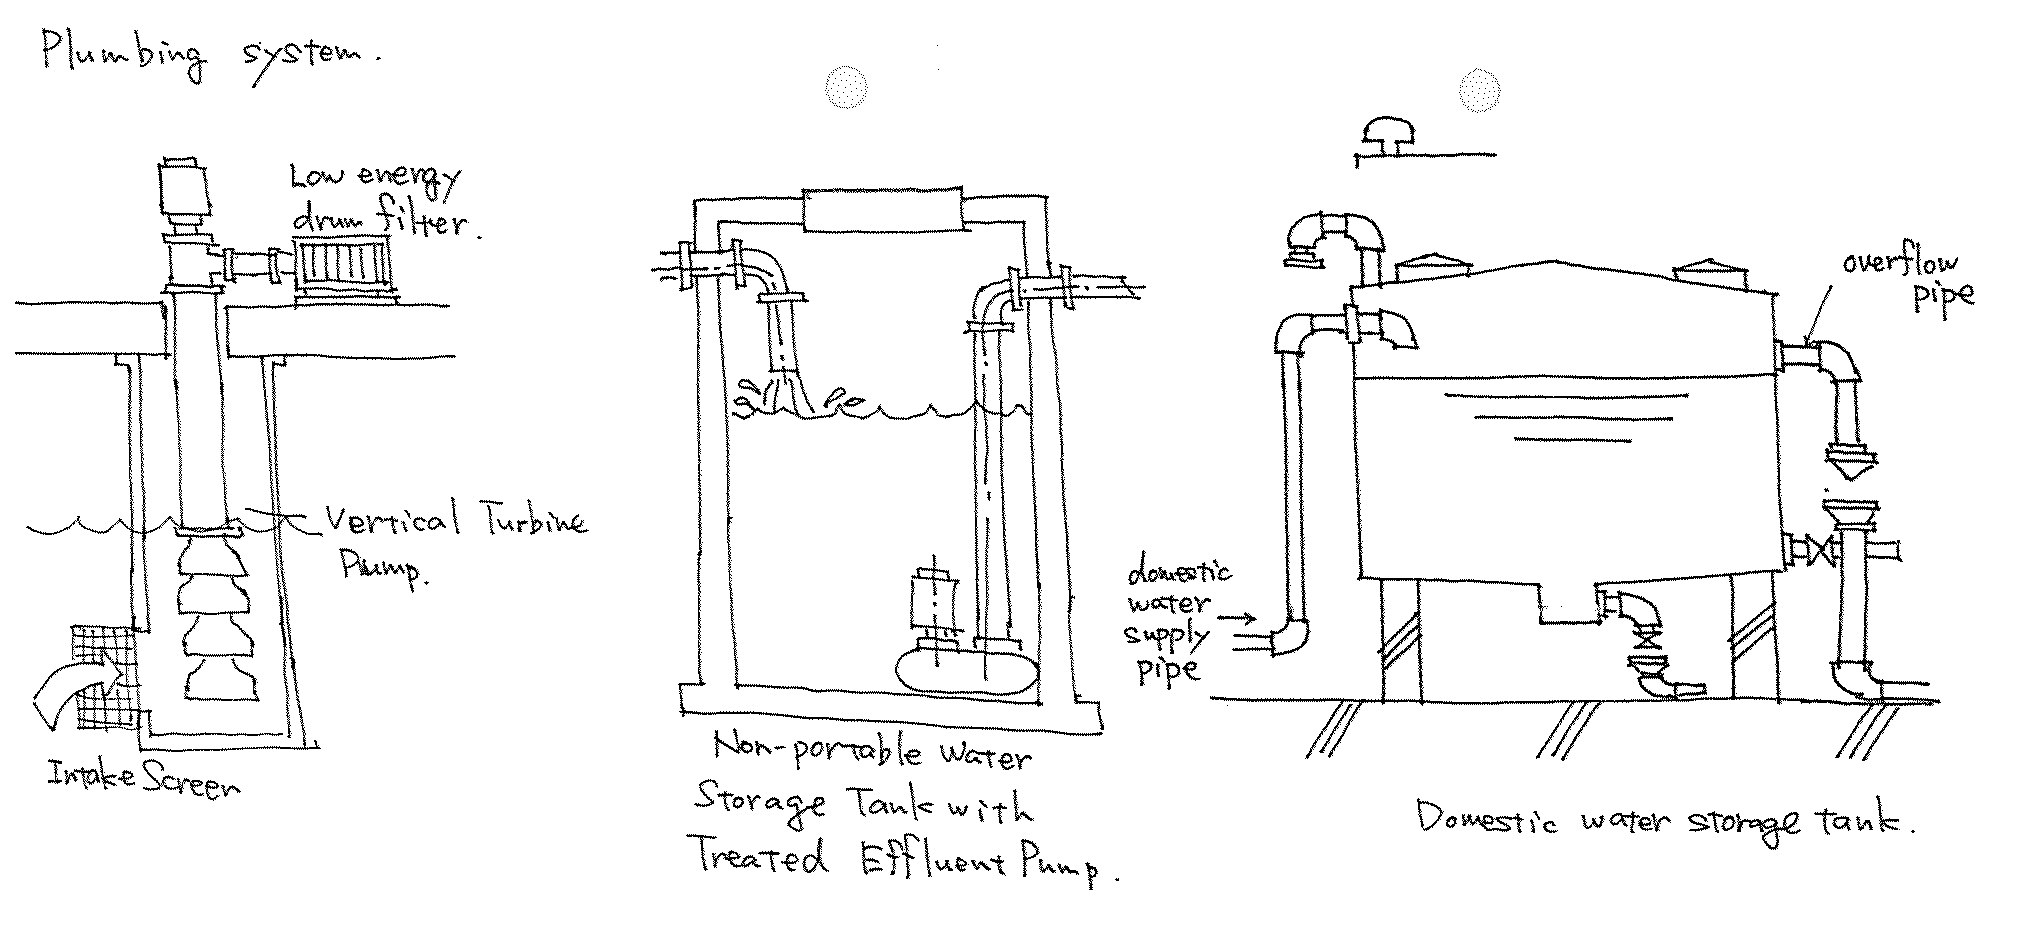 Plumbing system.
Low energy
drum filter.
Vertical Turbine
Pump.
Intake Screen
Non-portable Water
Storage Tank with
Treated Effluent Pump.
overflow
pipe
domestic
water
supply
pipe
Domestic water storage tank.